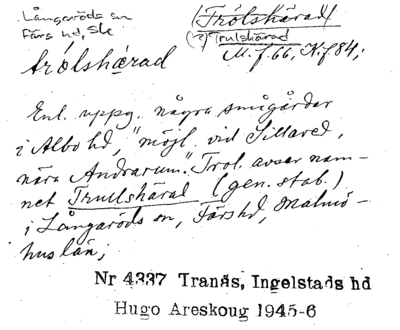 Långaröds sn
Färs hd, Sk
(Trólshärad)
(?) Trulshärad
M. f. 66, K. f. 84;
trólshärad
Enl. uppg. några smågårdar
i Albo hd, "möjl. vid Sillared,
nära Andrarum". Trol. avser nam-
net Trullshärad (gen. stab.)
i Långaröds sn, Färs hd, Malmö-
hus län;
Nr 4337 Tranås, Ingelstads hd
Hugo Areskoug 1945-6